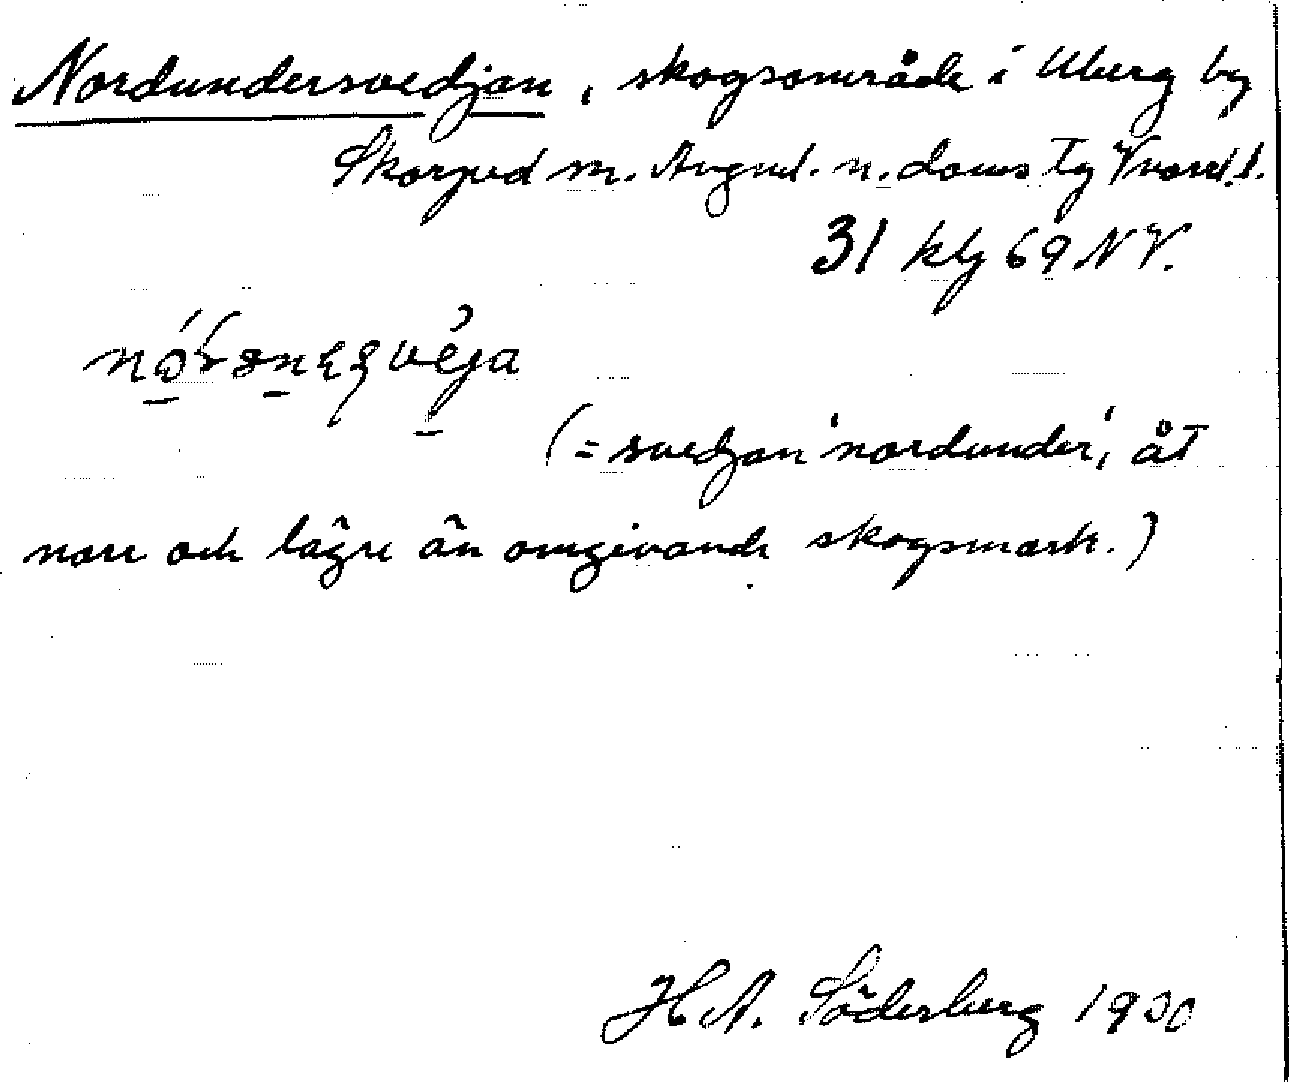 Nordundersvedjan, skogsområde i Uberg by
Skorped m. Ångml. n. doms Tg Vnorrl.l.
31 klg 69 NV.
(= svedjan 'nordunder', åt
norr och lägre än omgivande skogsmark.)
H.A. Söderberg 1930